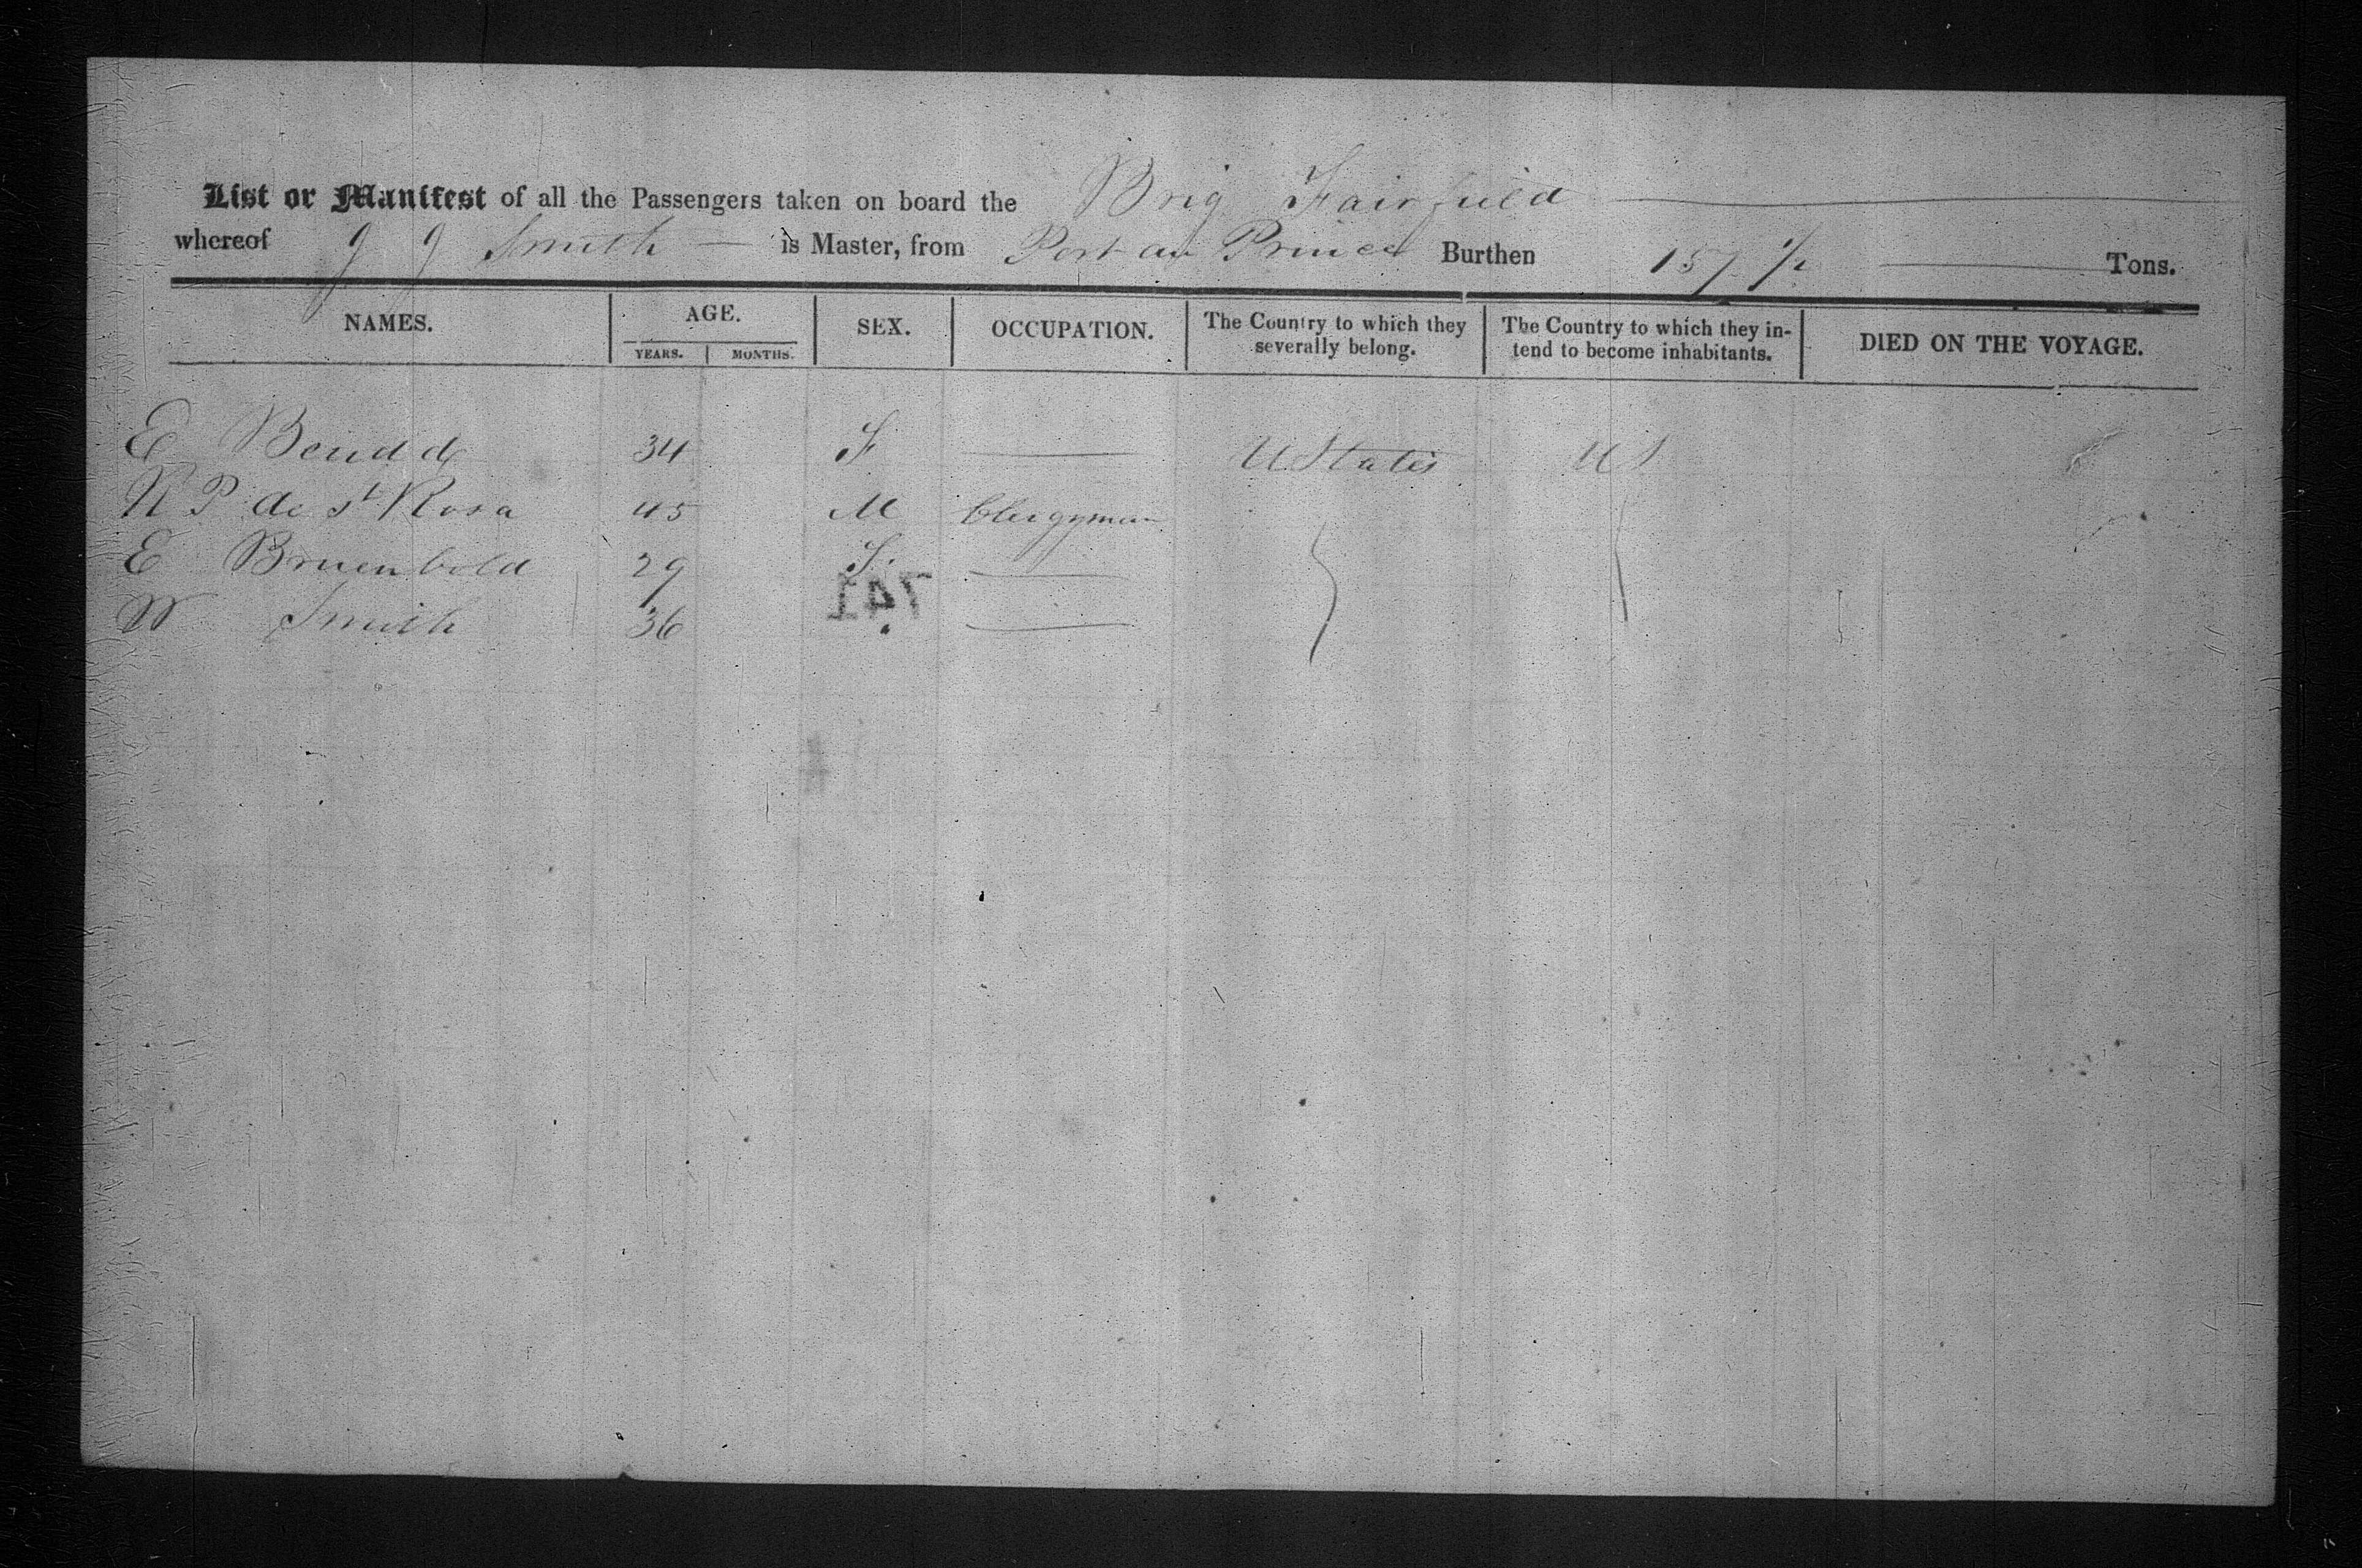 List or Manifest of all the Passengers taken on board the Brig Fairfield
whereof J J Smith is Master, from Port au Prince Burthen 157 1/2 Tons.
NAMES. AGE. SEX. OCCUPATION. The Country to which they severally belong. The Country to which they intend to become inhabitants. DIED ON THE VOYAGE.
YEARS. MONTHS.
E 34 F U States U S
R P de St Rosa 45 M Clergyman
E 29 F.
W Smith 36
741